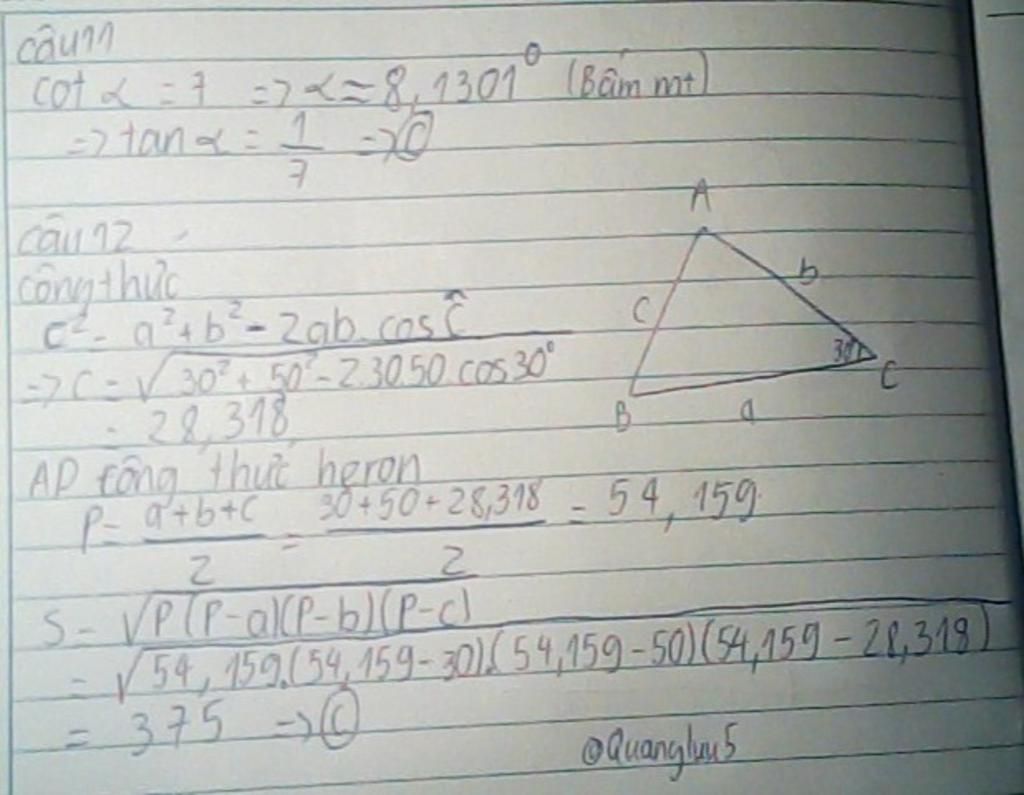 Câu 11
cot α = 7 => α = 8,1301° (Bấm mt)
=> tan α = 1/7 => Ⓒ
Câu 12
công thức
c² = a² + b² - 2ab.cos Ĉ
=> c = √(30² + 50² - 2.30.50.cos30°)
= 28,318
AD công thức heron
P = (a+b+c)/2 = (30+50+28,318)/2 = 54,159
S = √(P(P-a)(P-b)(P-c))
= √(54,159.(54,159-30).(54,159-50)(54,159-28,318))
= 375 -> Ⓒ
A
b
c
30°
C
B
a
@Quangluu5